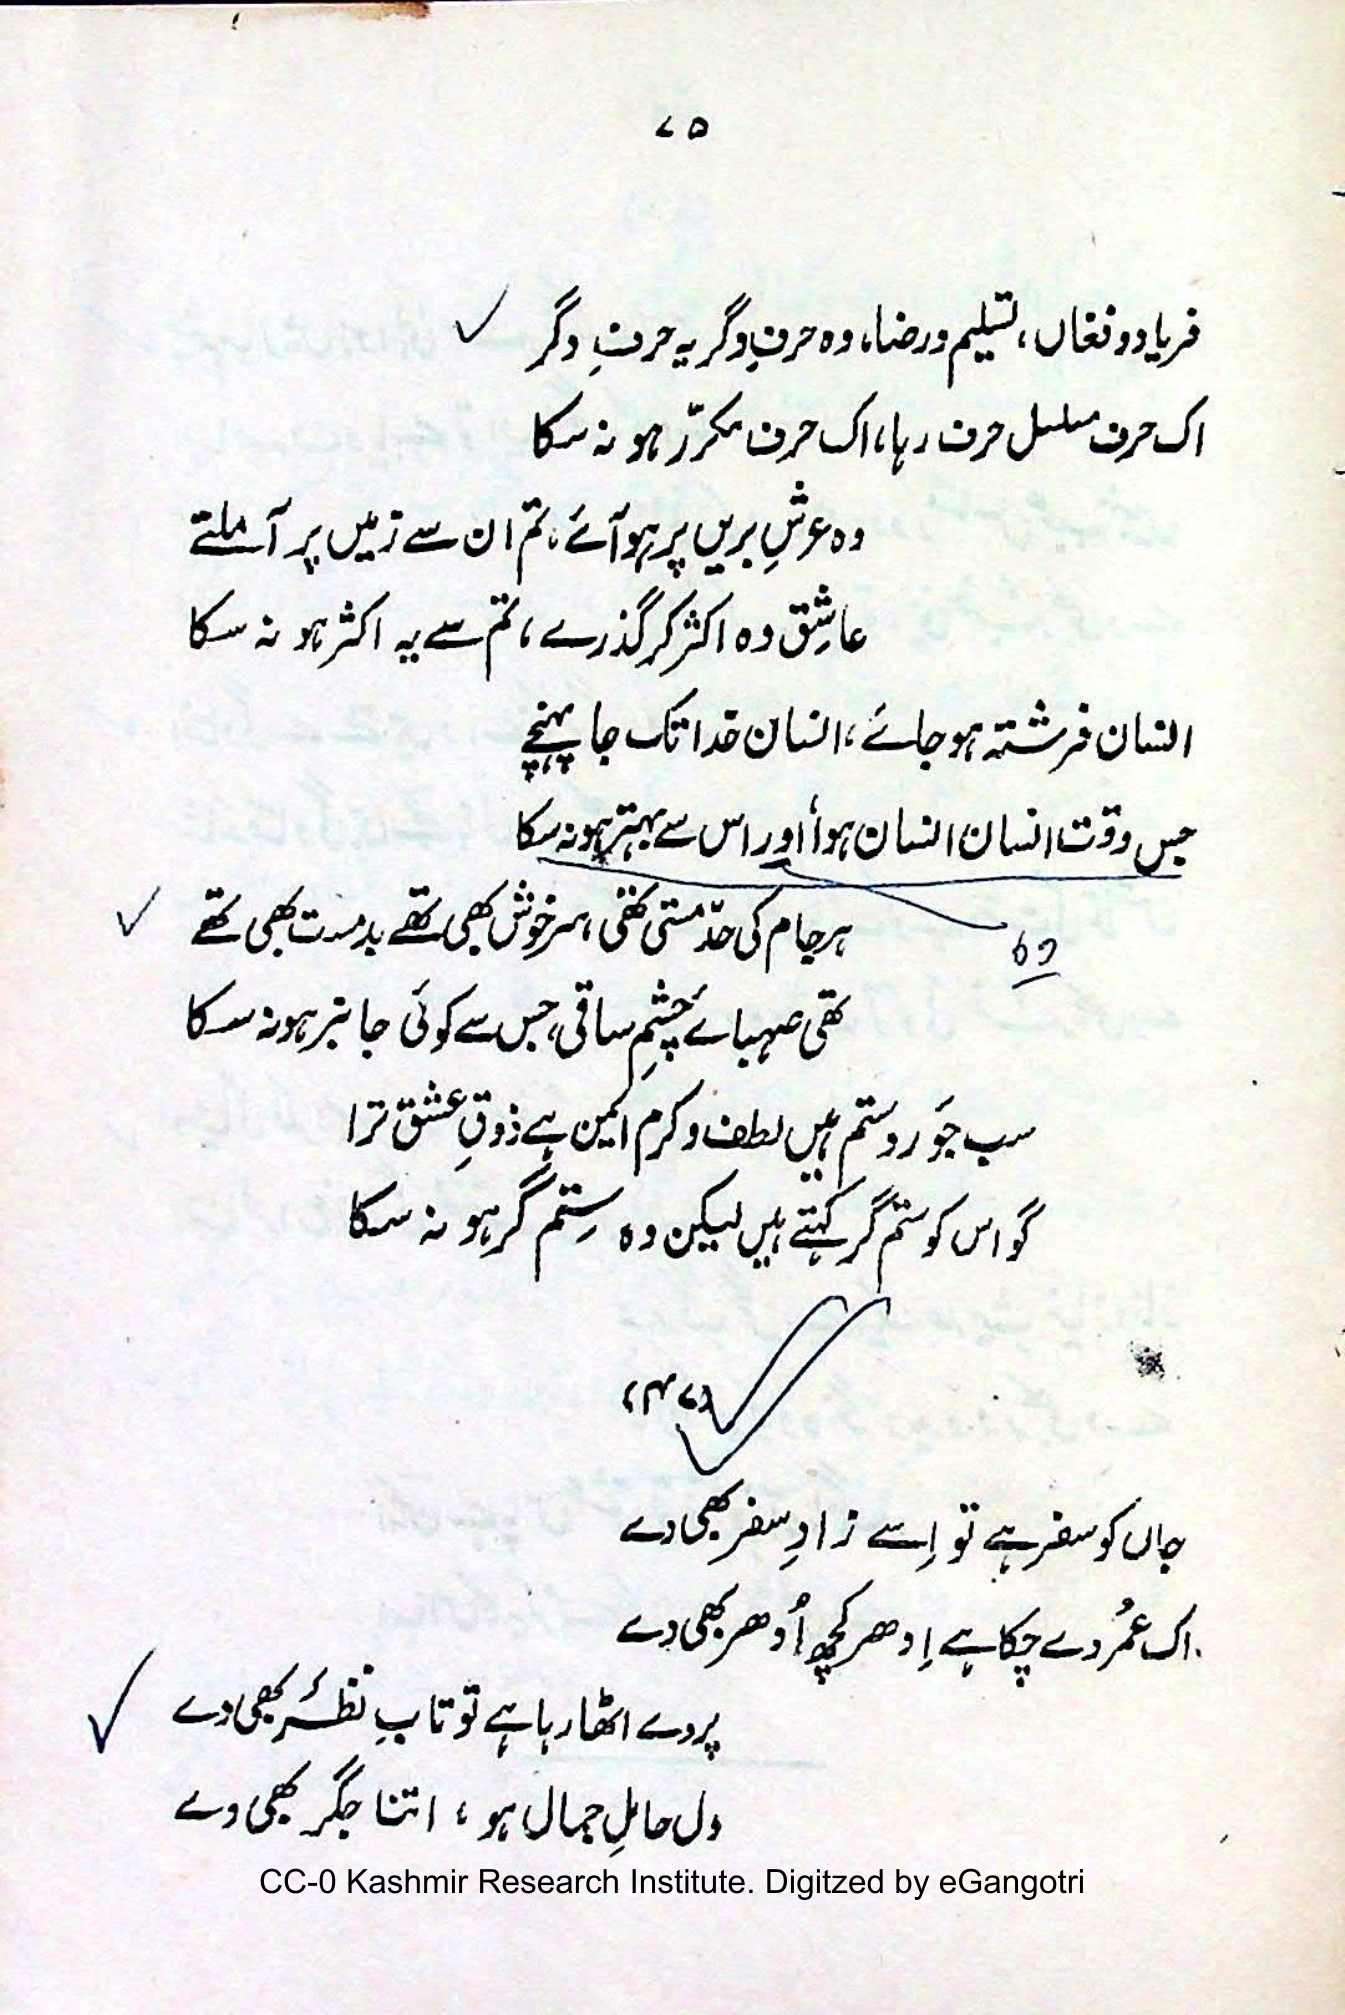 ۷۵
فریاد و فغاں، تسلیم و رضا، وہ حرفِ دگر یہ حرفِ دگر
اک حرف مسلسل حرف رہا، اک حرف مکرّر ہو نہ سکا
وہ عرشِ بریں پر ہو آئے، تم ان سے زمیں پر آ ملتے
عاشِق وہ اکثر کر گذرے، تم سے یہ اکثر ہو نہ سکا
انسان فرشتہ ہو جائے، انسان خدا تک جا پہنچے
جس وقت انسان انسان ہوا اور اس سے بہتر ہو نہ سکا
ہر جام کی حدّ مستی تھی، سرخوش بھی تھے بدمست بھی تھے
وہ
تھی صہبائے چشمِ ساقی، جس سے کوئی جانبر ہو نہ سکا
سب جَور و ستم ہیں لطف و کرم ایمن ہے ذوقِ عشق ترا
گو اس کو ستم گر کہتے ہیں لیکن وہ سِتم گر ہو نہ سکا
(۴۷)
جاں کو سفر ہے تو اِسے زادِ سفر بھی دے
اک عمُر دے چکا ہے اِدھر کچھ اُدھر بھی دے
پردے اٹھا رہا ہے تو تابِ نظر بھی دے
دل حاملِ جمال ہو، اتنا جگر بھی دے
CC-0 Kashmir Research Institute. Digitzed by eGangotri